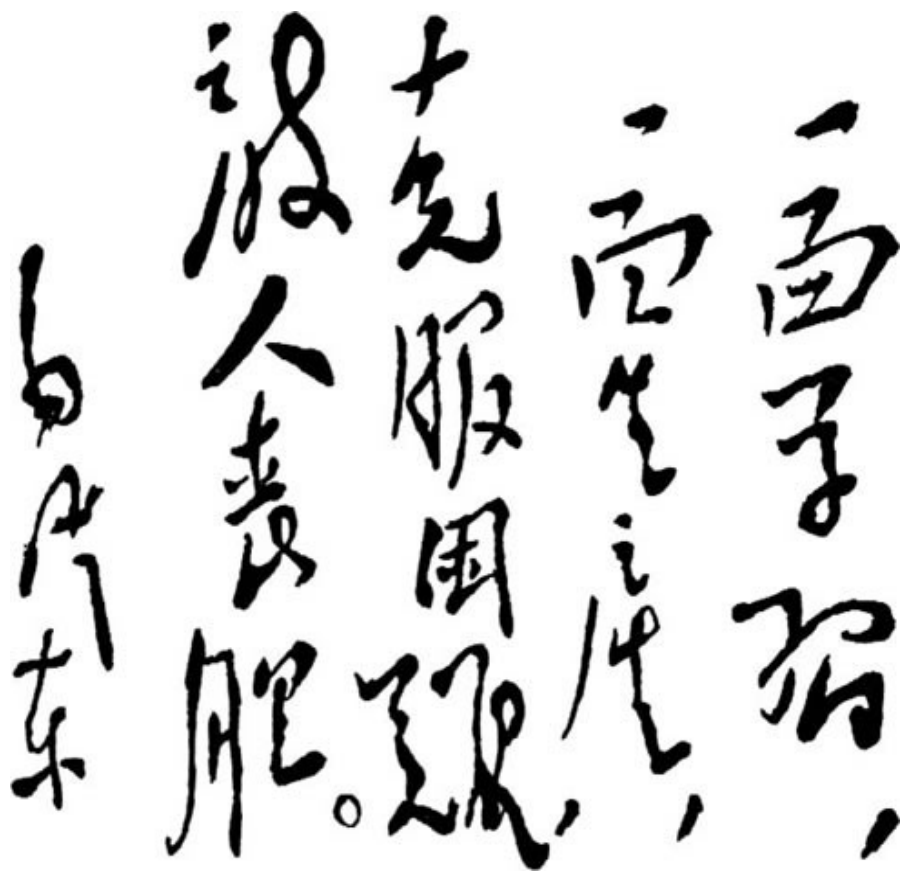 一面学习,
一面生产,
克服困难,
敌人丧胆。
毛泽东